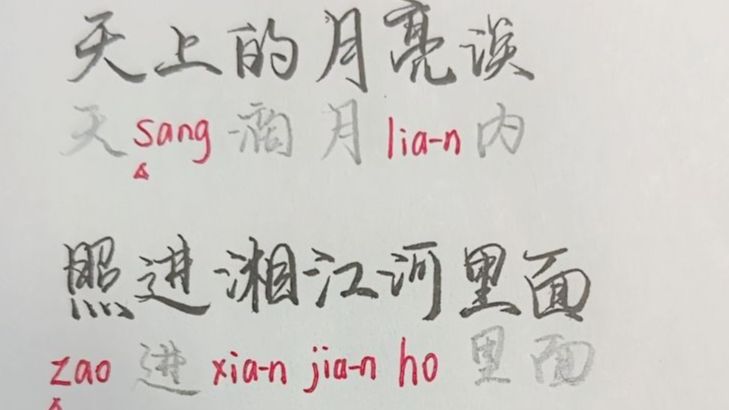 天上的月亮诶
天 sang 滴 月 lia-n 内
照进湘江河里面
zao 进 xia-n jia-n ho 里面